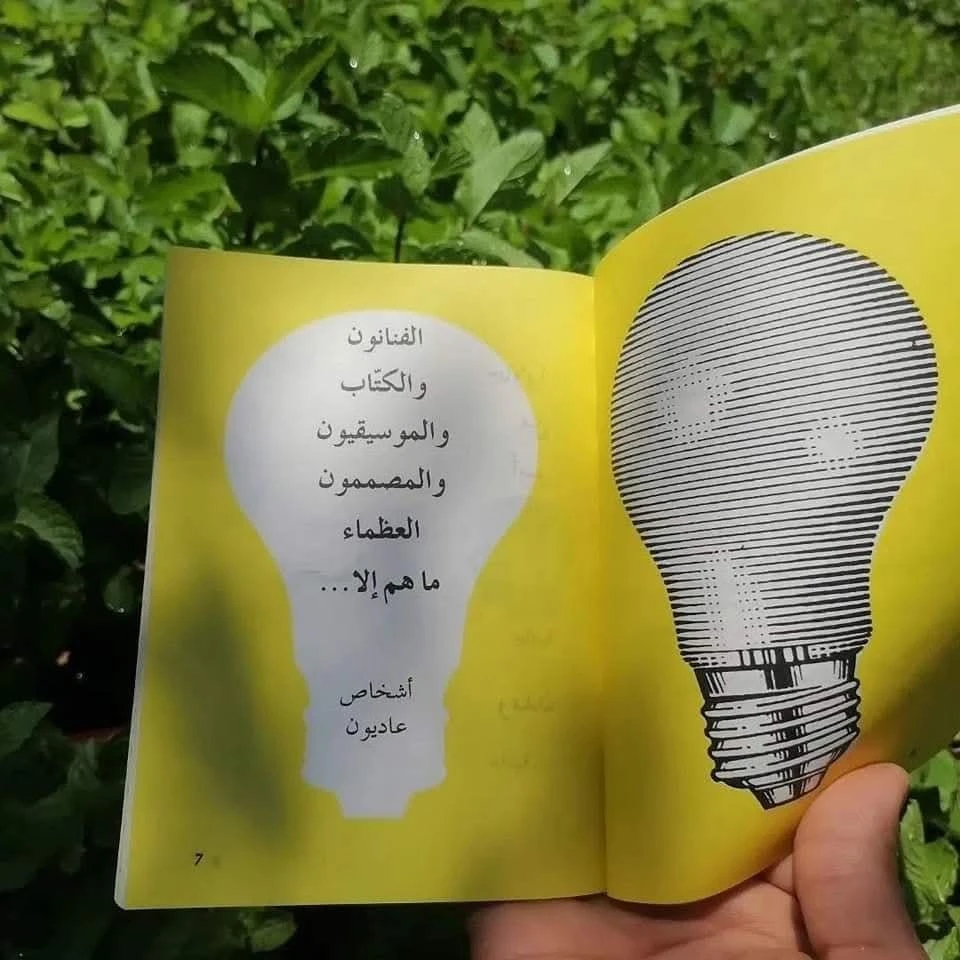 الفنانون
والكتّاب
والموسيقيون
والمصممون
العظماء
ما هم إلا...
أشخاص
عاديون
7